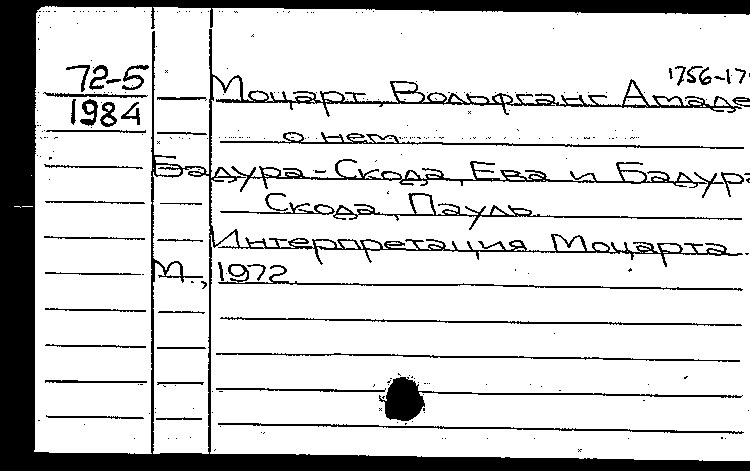 72-5
1984
1756-179
Моцарт, Вольфганг Амаде
о нем
Бадура-Скода, Ева и Бадура
Скода, Пауль.
Интерпретация Моцарта.
М., 1972.